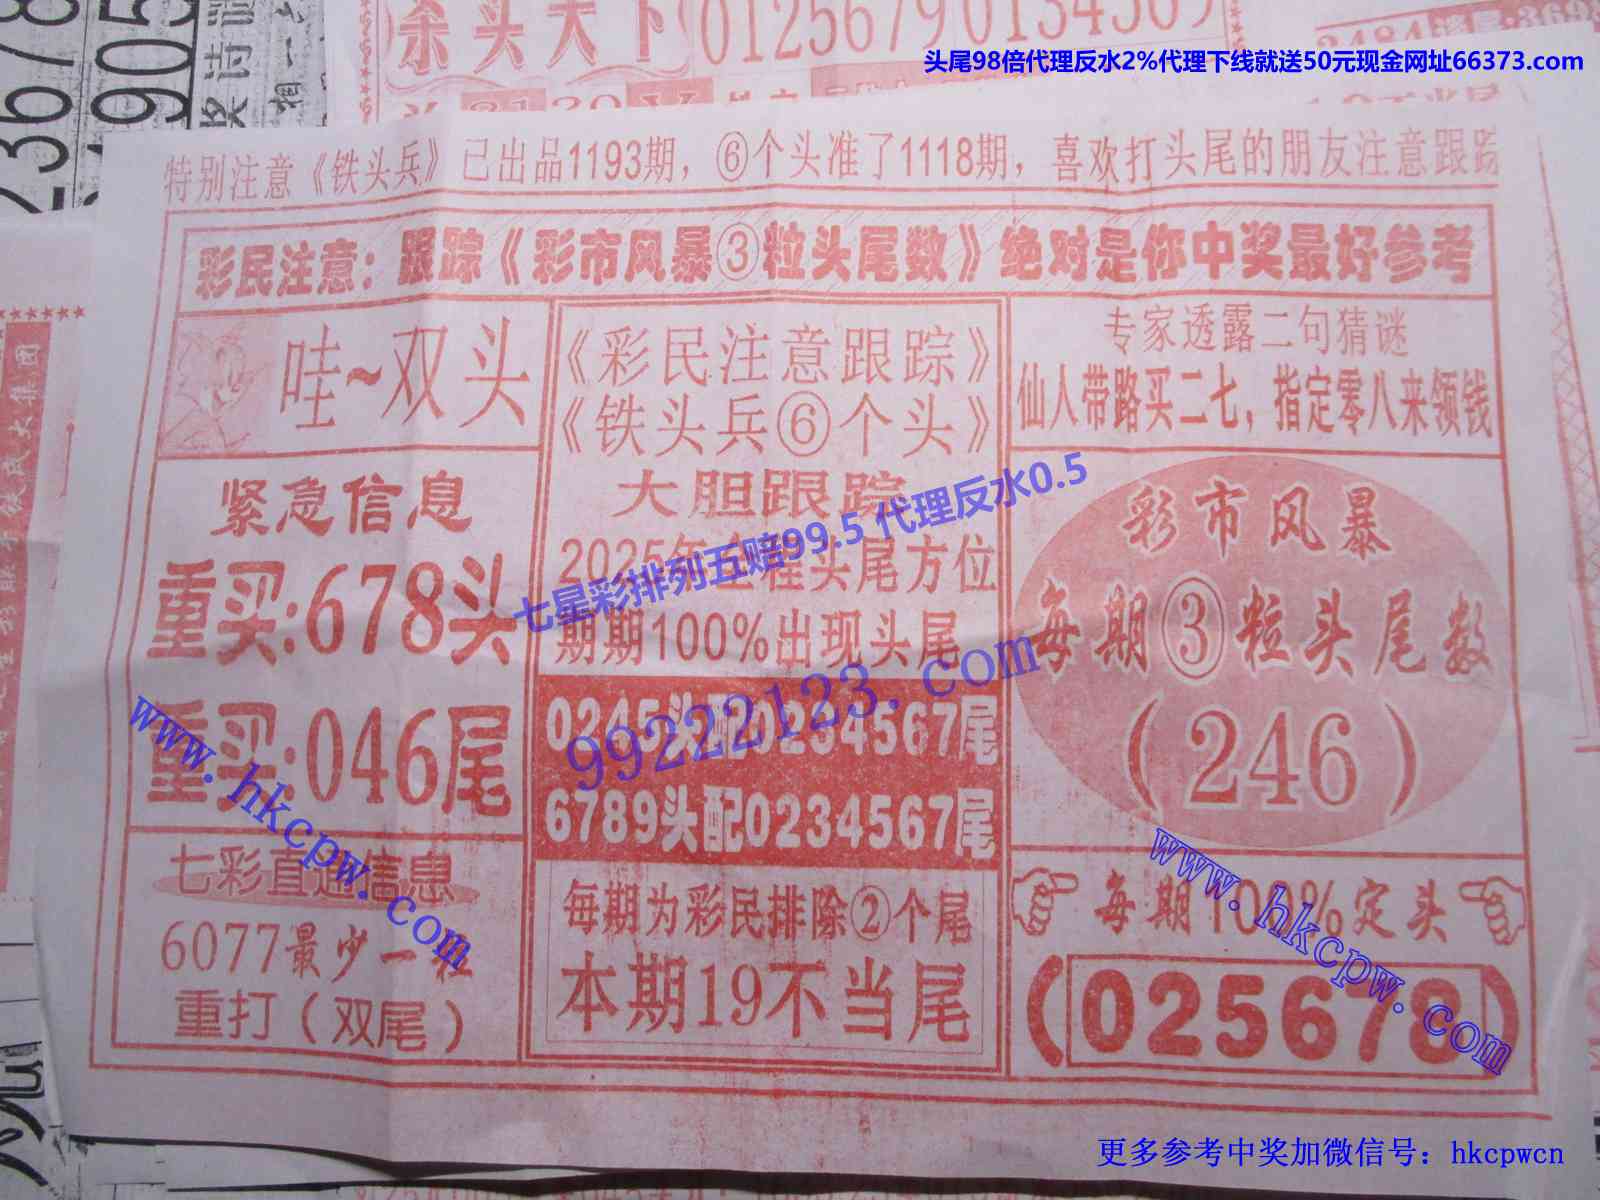 杀头天下 0125679 0134569
头尾98倍代理反水2%代理下线就送50元现金网址66373.com
特别注意《铁头兵》已出品1193期，⑥个头准了1118期，喜欢打头尾的朋友注意跟踪
彩民注意：跟踪《彩市风暴③粒头尾数》绝对是你中奖最好参考
哇~双头
紧急信息
重买:678头
重买:046尾
七彩直通信息
6077最少一粒
重打（双尾）
《彩民注意跟踪》
《铁头兵⑥个头》
大胆跟踪
2025年全程头尾方位
期期100%出现头尾
0245头配0234567尾
6789头配0234567尾
每期为彩民排除②个尾
本期19不当尾
专家透露二句猜谜
仙人带路买二七，指定零八来领钱
彩市风暴
每期③粒头尾数
（246）
每期100%定头
（025678）
七星彩排列五赔99.5 代理反水0.5
99222123.com
www.hkcpw.com
www.hkcpw.com
更多参考中奖加微信号：hkcpwcn